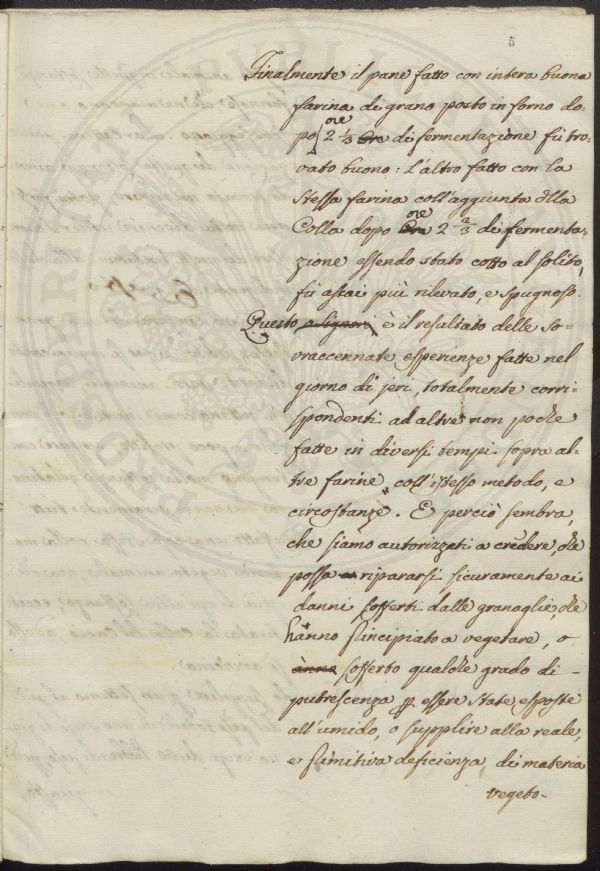 5
Finalmente il pane fatto con intera buona
farina di grano posto in forno do-
po ore 2 1/3 di fermentazione fù tro-
vato buono: L'altro fatto con la
stessa farina coll'aggiunta dlla
Colla dopo ore 2 2/3 di fermenta-
zione essendo stato cotto al solito,
fù assai più rilevato, e spugnoso.
Questo è il resultato delle so-
vraccennate esperienze fatte nel
giorno di jeri, totalmente corri-
spondenti ad altre non poche
fatte in diversi tempi sopra al-
tre farine, coll'istesso metodo, e
circostanze. E perciò sembra,
che siamo autorizzati a credere, che
possa ripararsi sicuramente ai
danni sofferti dalle granaglie, che
hanno principiato a vegetare, o
sofferto qualche grado di
putrescenza p essere state esposte
all'umido, o supplire alla reale,
e primitiva deficienza di materia
vegeto-